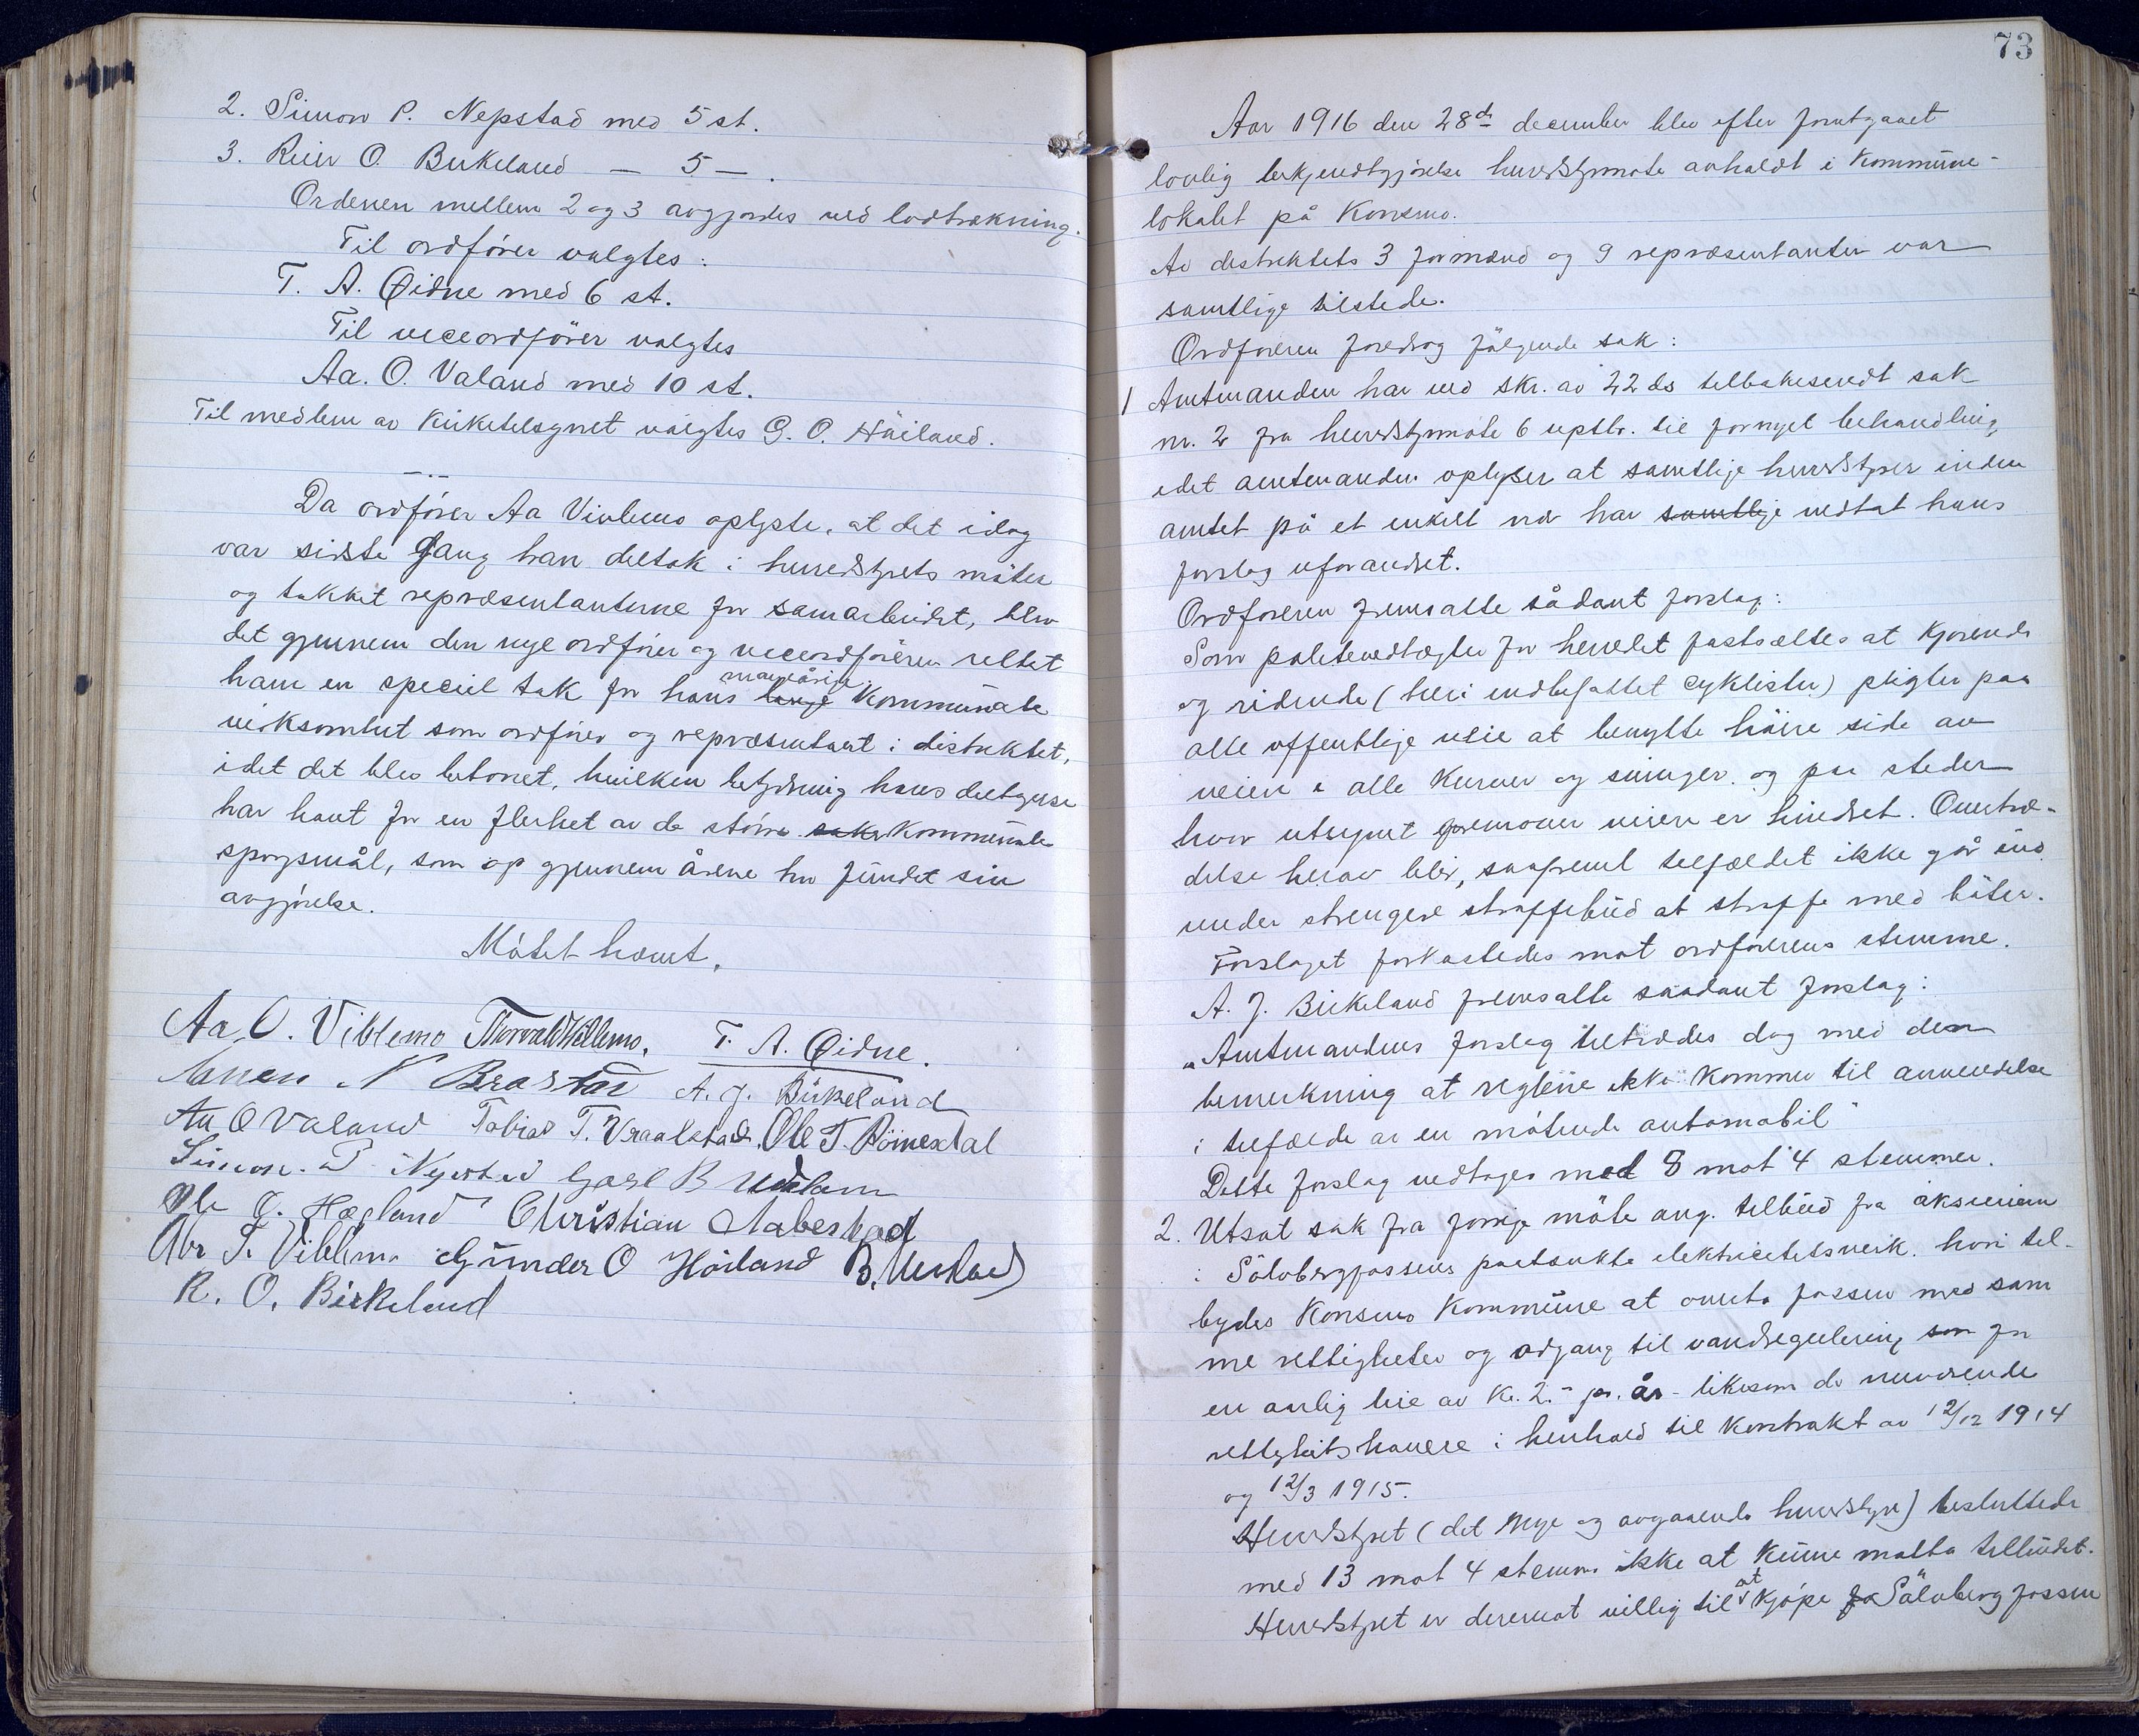 2. Simon P. Nepstad med 5 st.
3. Reier O. Birkeland — 5 — .
Ordenen mellem 2 og 3 avgjordes ved lodtrækning.
Til ordfører valgtes:
T. A. Øidne med 6 st.
Til viceordfører valgtes
Aa. O. Valand med 10 st.
Til medlem av kirketilsynet valgtes G. O. Håiland.
Da ordfører Aa Viblemo oplyste, at det idag
var sidste gang han deltok i herredstyrets møter
og takket repræsentanterne for samarbeidet, blev
det gjennem den nye ordfører og viceordføreren rettet
ham en speciel tak for hans lange mangeårige kommunale
virksomhet som ordfører og repræsentant i distriktet,
idet det blev betonet, hvilken betydning hans deltagelse
har havt for en flerhet av de större saker kommunale
spørgsmål, som op gjennem årene har fundet sin
avgjørelse.
Møtet hævet.
Aa. O. Viblemo Thorvald Viblemo. T. A. Øidne.
N Brastad A. J. Birkeland
Aa O Valand Tobias T. Vraalstad. Ole T. Röinesdal
Simon. P. Nepstad Carl B Udlam
Ole O. Hægland Christian Aabestad
Abr T. Viblemo Gunder O Höiland B.
R. O. Birkeland
73
Aar 1916 den 28de december blev efter forutgaaet
lovlig bekjendtgjørelse herredstyrmøte avholdt i kommune-
lokalet på Konsmo.
Av distriktets 3 formænd og 9 repræsentanter var
samtlige tilstede.
Ordføreren foredrog følgende sak:
1 Amtmanden har ved skr. av 22 ds tilbakesendt sak
nr. 2 fra herredstyrmøte 6 septbr. til fornyet behandling,
idet amtmanden oplyser at samtlige herredstyrer inden
amtet på et enkelt nær har samtlige vedtat hans
forslag uforandret.
Ordføreren fremsatte sådant forslag:
Som politivedtægter for herredet fastsættes at kjørende
og ridende (heri indbefattet cyklister) pligter paa
alle offentlige veie at benytte høire side av
veien i alle kurver og svinger og paa steder
hvor utsynet fremover veien er hindret. Overtræ-
delse herav blir, saafremt tilfældet ikke går ind
under strengere straffebud at straffe med böter.
Forslaget forkastedes mot ordførerens stemme.
A. J. Birkeland fremsatte saadant forslag:
"Amtmandens forslag tiltrædes dog med den
bemerkning at reglene ikke kommer til anvendelse
i tilfælde av en møtende automobil"
Dette forslag vedtoges med 8 mot 4 stemmer.
2. Utsat sak fra forrige møte ang. tilbud fra aksieeiere
i Sölvbergfossens paatænkte elektricitetsverk. hvori til-
bydes Konsmo kommune at overta fossen med sam
me rettigheter og adgang til vandregulering som for
en aarlig leie av kr. 2.- pr. år - likesom de nuværende
rettighetshavere i henhold til kontrakt av 12/12 1914
og 12/3 1915.
Herredstyret (det nye og avgaaende herredstyre) besluttede
med 13 mot 4 stemmer ikke at kunne motta tilbudet.
Herredstyret er derimot villig til at kjøpe fo Sölvberg fossen